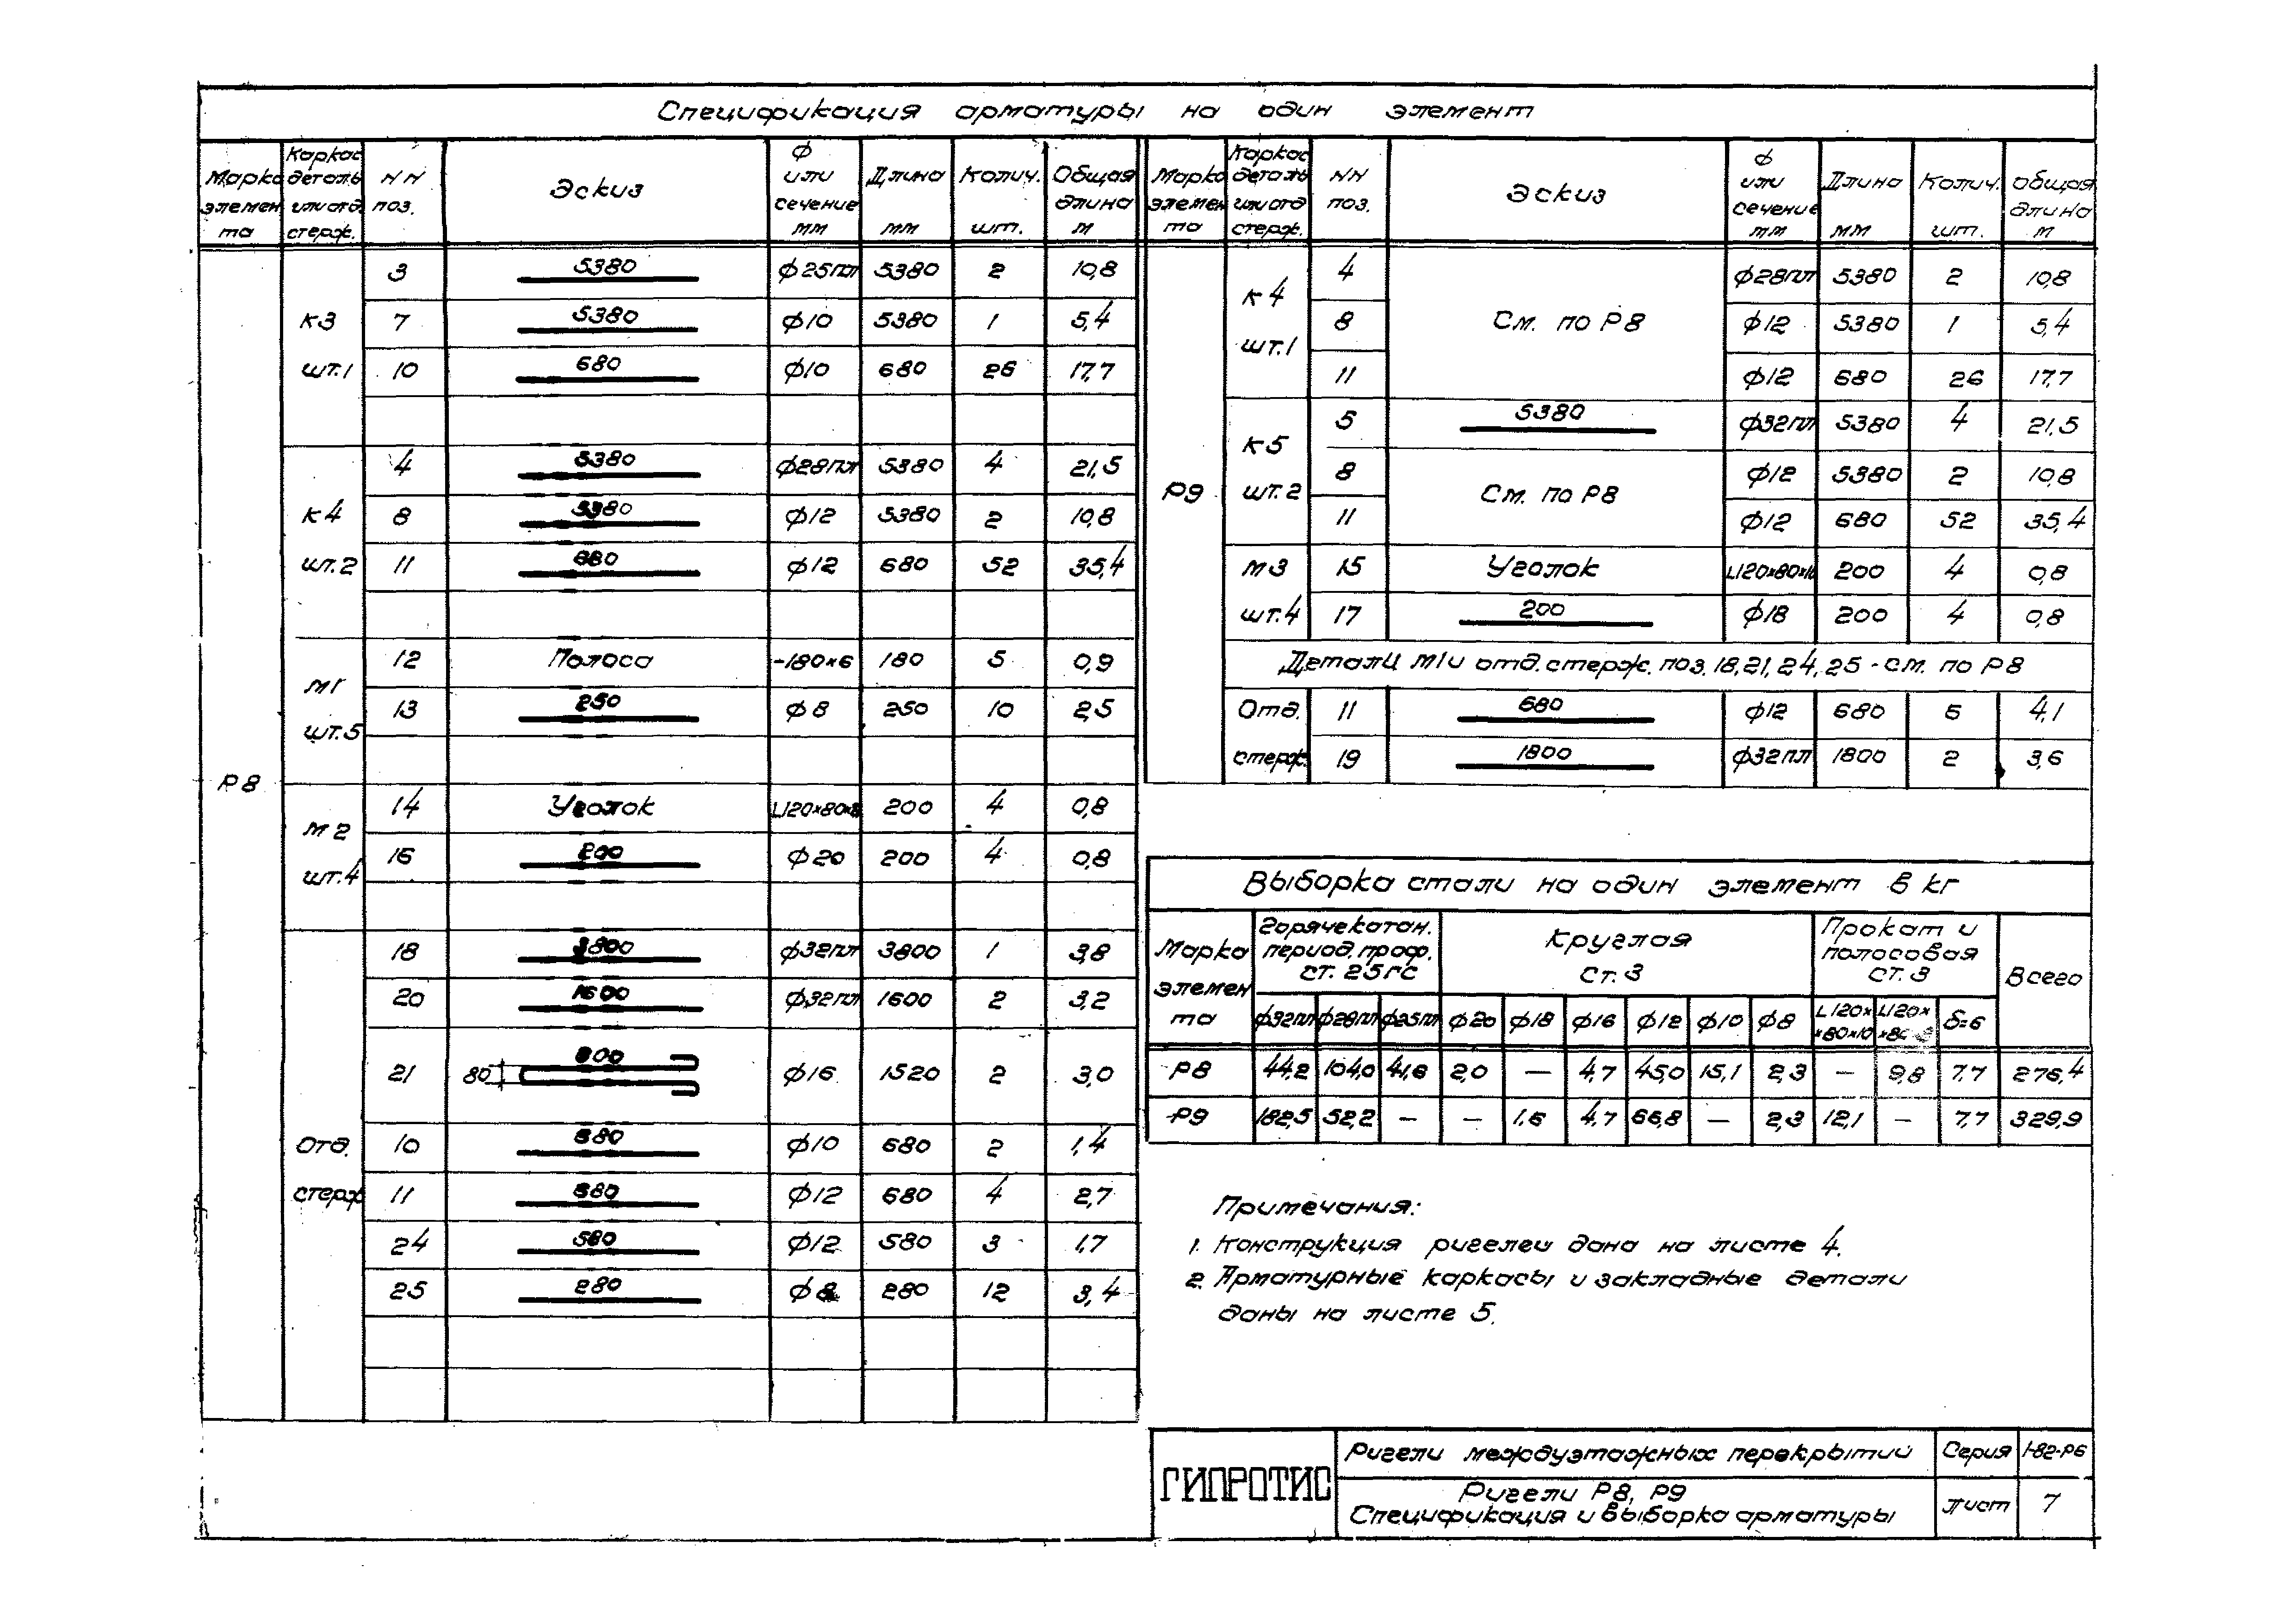 Спецификация арматуры на один элемент
Марка элемента | Каркас деталь или отд. стерж. | NN поз. | Эскиз | ф или сечение мм | Длина мм | Колич. шт. | Общая длина м
Р8
К3 шт.1
3 | 5380 | ф25пл | 5380 | 2 | 10,8
7 | 5380 | ф10 | 5380 | 1 | 5,4
10 | 680 | ф10 | 680 | 26 | 17,7
К4 шт.2
4 | 5380 | ф28пл | 5380 | 4 | 21,5
8 | 5380 | ф12 | 5380 | 2 | 10,8
11 | 680 | ф12 | 680 | 52 | 35,4
М1 шт.5
12 | Полоса | -180×6 | 180 | 5 | 0,9
13 | 250 | ф8 | 250 | 10 | 2,5
М2 шт.4
14 | Уголок | L120×80×8 | 200 | 4 | 0,8
16 | 200 | ф20 | 200 | 4 | 0,8
Отд. стерж
18 | 3800 | ф32пл | 3800 | 1 | 3,8
20 | 1600 | ф32пл | 1600 | 2 | 3,2
21 | 80 | 800 | ф16 | 1520 | 2 | 3,0
10 | 680 | ф10 | 680 | 2 | 1,4
11 | 680 | ф12 | 680 | 4 | 2,7
24 | 580 | ф12 | 580 | 3 | 1,7
25 | 280 | ф8 | 280 | 12 | 3,4
Марка элемента | Каркас деталь или отд стерж. | NN поз. | Эскиз | ф или сечение мм | Длина мм | Колич. шт. | Общая длина м
Р9
К4 шт.1
4 | См. по Р8 | ф28пл | 5380 | 2 | 10,8
8 | ф12 | 5380 | 1 | 5,4
11 | ф12 | 680 | 26 | 17,7
К5 шт.2
5 | 5380 | ф32пл | 5380 | 4 | 21,5
8 | См. по Р8 | ф12 | 5380 | 2 | 10,8
11 | ф12 | 680 | 52 | 35,4
М3 шт.4
15 | Уголок | L120×80×10 | 200 | 4 | 0,8
17 | 200 | ф18 | 200 | 4 | 0,8
Детали М1 и отд. стерж. поз. 18, 21, 24, 25 - см. по Р8
Отд. стерж.
11 | 680 | ф12 | 680 | 6 | 4,1
19 | 1800 | ф32пл | 1800 | 2 | 3,6
Выборка стали на один элемент в кг
Марка элемента | Горячекатан. период. проф. ст. 25ГС | Круглая Ст. 3 | Прокат и полосовая Ст. 3 | Всего
ф32пл | ф28пл | ф25пл | ф20 | ф18 | ф16 | ф12 | ф10 | ф8 | L120××80×10 | L120××80×8 | δ=6
Р8 | 44,2 | 104,0 | 41,6 | 2,0 | — | 4,7 | 45,0 | 15,1 | 2,3 | — | 9,8 | 7,7 | 276,4
Р9 | 182,5 | 52,2 | — | — | 1,6 | 4,7 | 66,8 | — | 2,3 | 12,1 | — | 7,7 | 329,9
Примечания:
1. Конструкция ригелей дана на листе 4.
2. Арматурные каркасы и закладные детали
даны на листе 5.
ГИПРОТИС
Ригели междуэтажных перекрытий | Серия | 1-82-Р6
Ригели Р8, Р9
Спецификация и выборка арматуры | Лист | 7